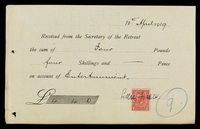 18th April 1919
Received from the Secretary of the Retreat
the sum of Four Pounds
four Shillings and — Pence
on account of Entertainment.
£ 4 4 0
9.